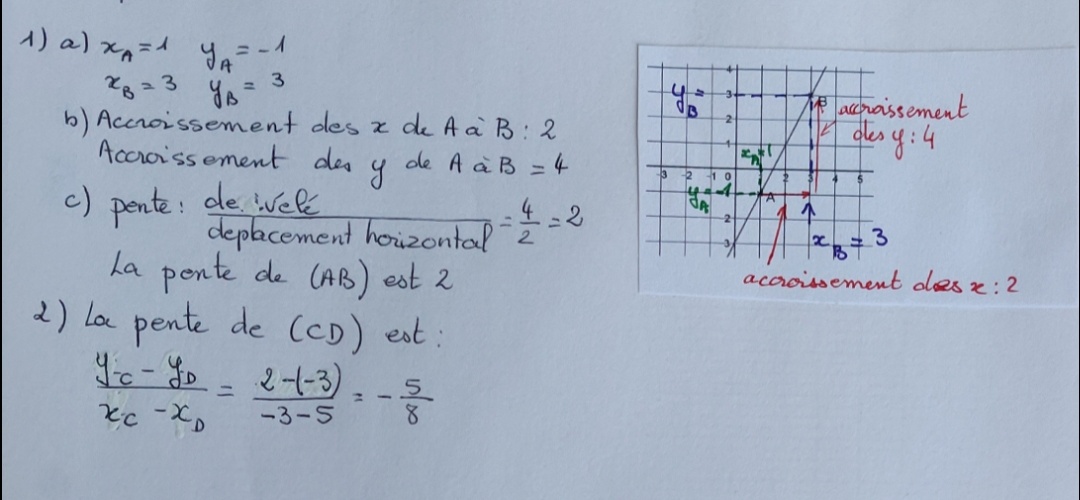 1) a) x_A = 1 y_A = -1
x_B = 3 y_B = 3
b) Accroissement des x de A à B : 2
Accroissement des y de A à B = 4
c) pente : dénivelé / déplacement horizontal = 4/2 = 2
La pente de (AB) est 2
2) La pente de (CD) est :
(y_C - y_D) / (x_C - x_D) = (2-(-3)) / (-3-5) = - 5/8
4
y_B = 3
B
accroissement
des y : 4
2
1
x_A = 1
-3 -2 -1 0 2 4 5
y_A = -1
A
2
3
x_B = 3
accroissement des x : 2